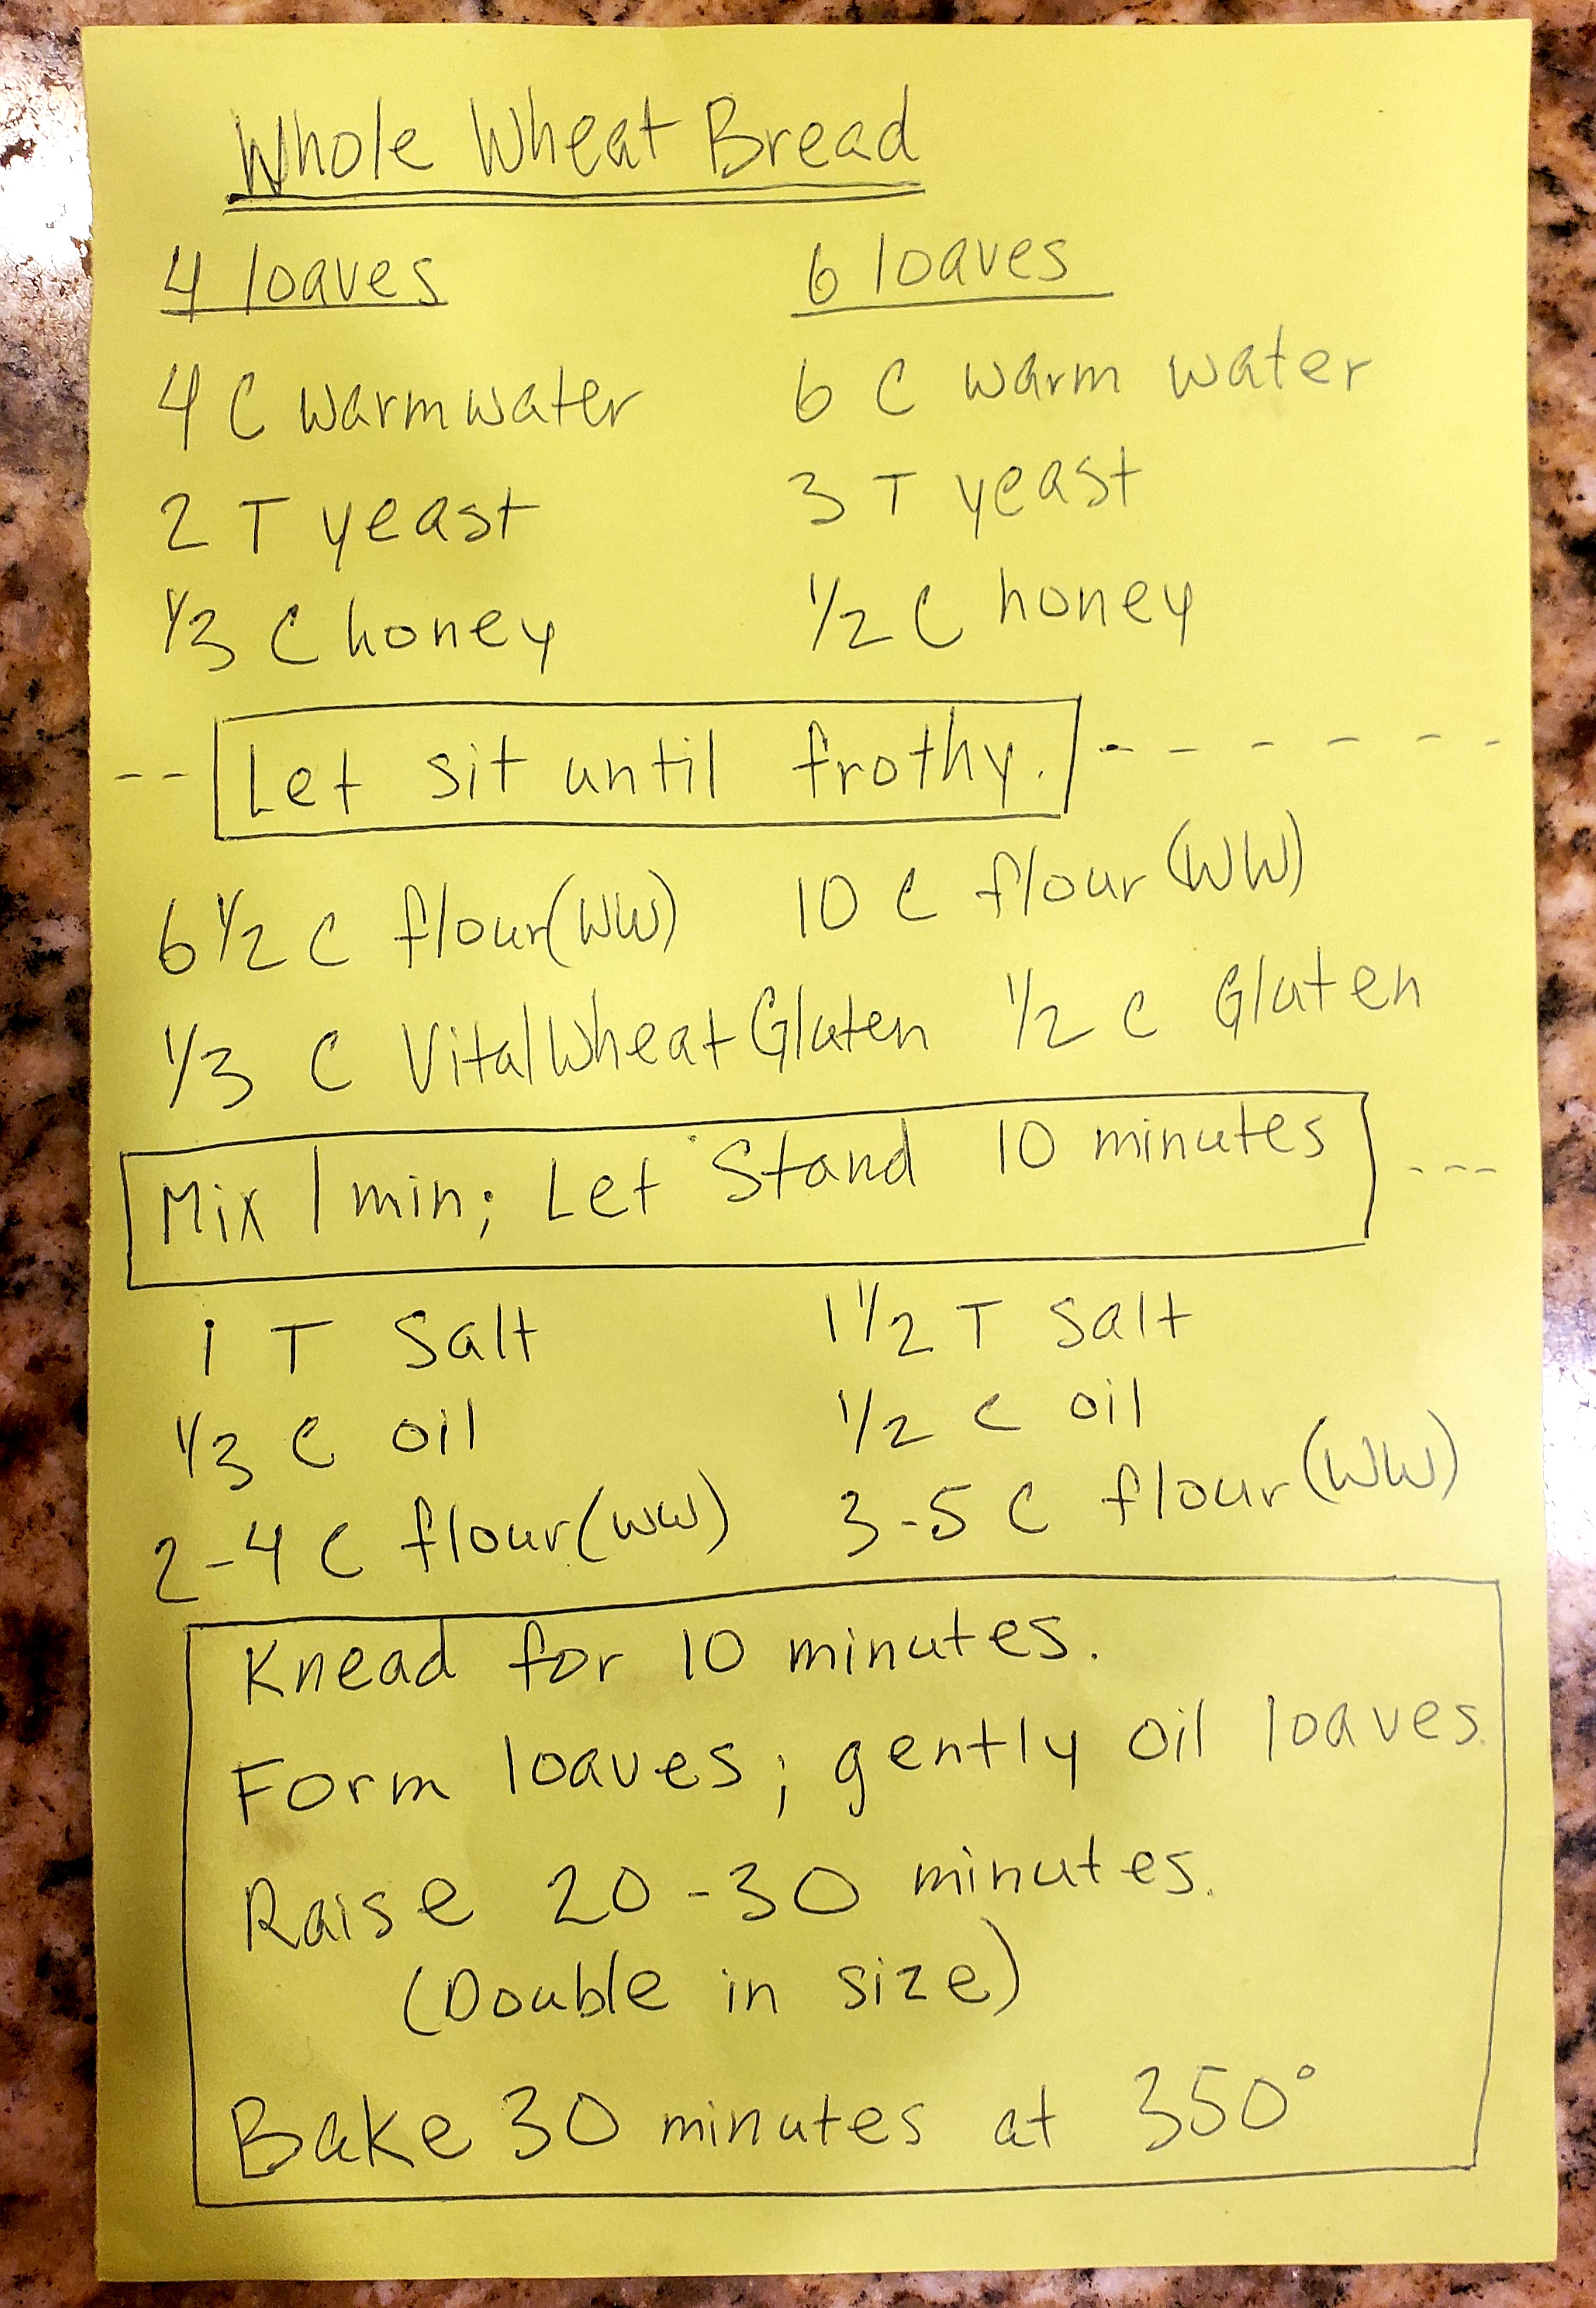 Whole Wheat Bread
4 loaves 6 loaves
4 C warm water 6 C warm water
2 T yeast 3 T yeast
1/3 C honey 1/2 C honey
-- Let sit until frothy. - - - - - -
6 1/2 C flour (WW) 10 C flour (WW)
1/3 C Vital Wheat Gluten 1/2 C Gluten
Mix 1 min; Let Stand 10 minutes ---
1 T Salt 1 1/2 T Salt
1/3 C oil 1/2 C oil
2-4 C flour (WW) 3-5 C flour (WW)
Knead for 10 minutes.
Form loaves; gently oil loaves.
Raise 20-30 minutes.
(Double in size)
Bake 30 minutes at 350°